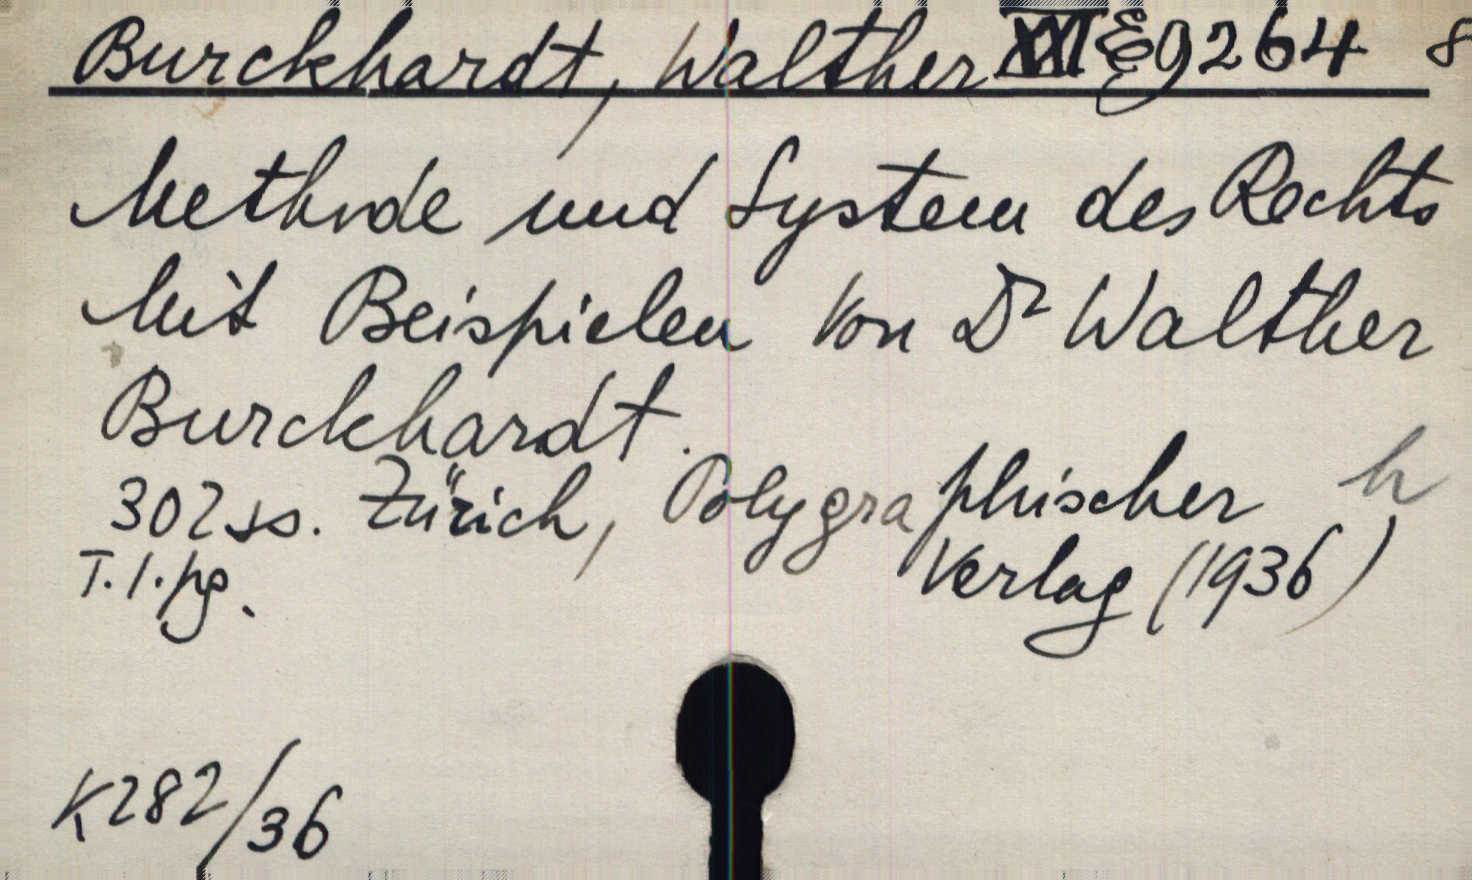 Burckhardt, Walther XXI E 9264 8
Methode und System des Rechts
Mit Beispielen Von Dr Walther
Burckhardt.
302 ss. Zürich, Polygraphischer h
Verlag (1936)
T. 1. pg.
K 282/36